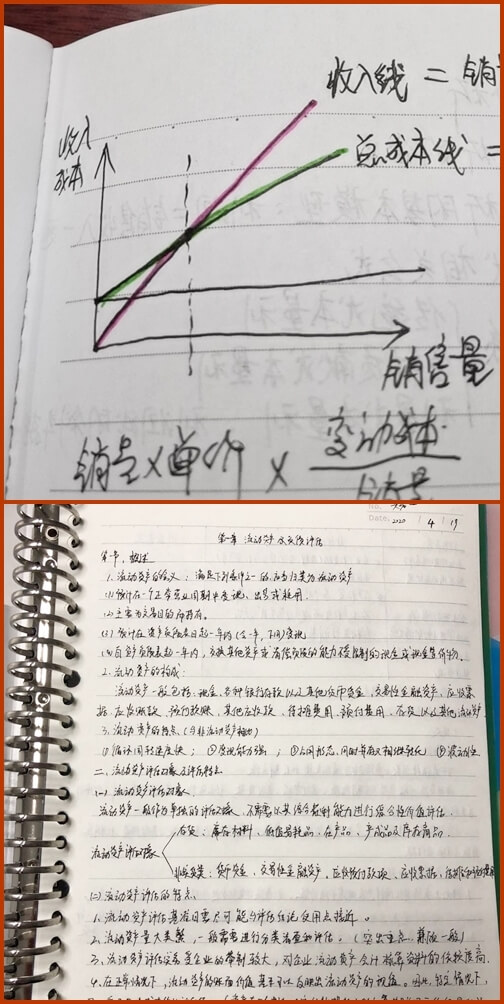 收入线 = 销
收入
成本
总成本线 =
销售量
销量×单价 × 变动成本
销量
No.
Date. 2020 / 4 / 19
第一章 流动资产
第一节、概述
1.流动资产的含义：满足下列条件之一的,应当归类为流动资产
(1)预计在一个正常营业周期中变现、出售或耗用.
(2)主要为交易目的而持有.
(3)预计在资产负债表日起一年内(含一年,下同)变现
(4)自资产负债表日起一年内,交换其他资产或清偿负债的能力不受限制的现金或现金等价物.
2.流动资产的构成:
流动资产一般包括:现金、各种银行存款以及其他货币资金、交易性金融资产、应收票
据、应收账款、预付款项、其他应收款、待摊费用、存货以及其他流动资产
3.流动资产的特点(与非流动资产相比)
(1)循环周转速度快； ②变现能力强； ④波动性
二、流动资产评估对象及评估特点
(一)流动资产评估对象
流动资产一般作为单独的评估对象,不需要以其综合获利能力进行综合性价值评估.
存货：库存材料、低值易耗品、在产品、产成品及库存商品.
流动资产评估对象
货币资金、交易性金融资产、应收预付款项、应收票据、
(二)流动资产评估的特点.
1.流动资产评估基准日要尽可能与评估结论使用点接近。
2.流动资产量大类繁,一般需要进行分类清查和评估。(突出重点、兼顾一般)
3.流动资产评估受企业的牵制较大,对企业流动资产会计核算资料的依赖度高.
4.在正常情况下,流动资产的账面价值基本可以反映出流动资产的现值。因此,特定情况下,